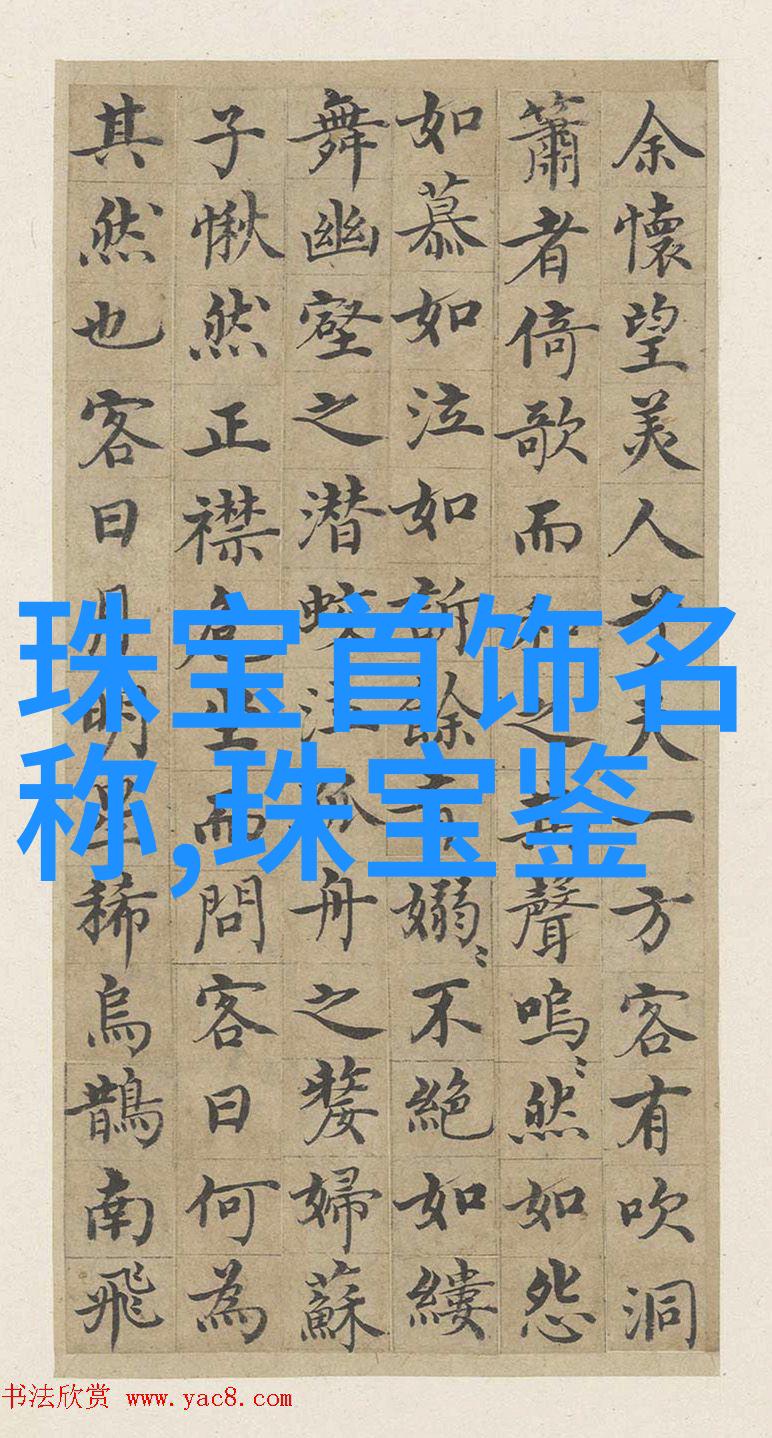 余懷望美人兮天一方客有吹洞
簫者倚歌而和之其聲嗚〻然如怨
如慕如泣如訴餘音嫋〻不絕如縷
舞幽壑之潜蛟泣孤舟之嫠婦蘇
子愀然正襟危坐而問客曰何為
其然也客曰月明星稀烏鵲南飛
珠宝首饰名
称,珠宝鉴
书法欣赏 www.yac8.com